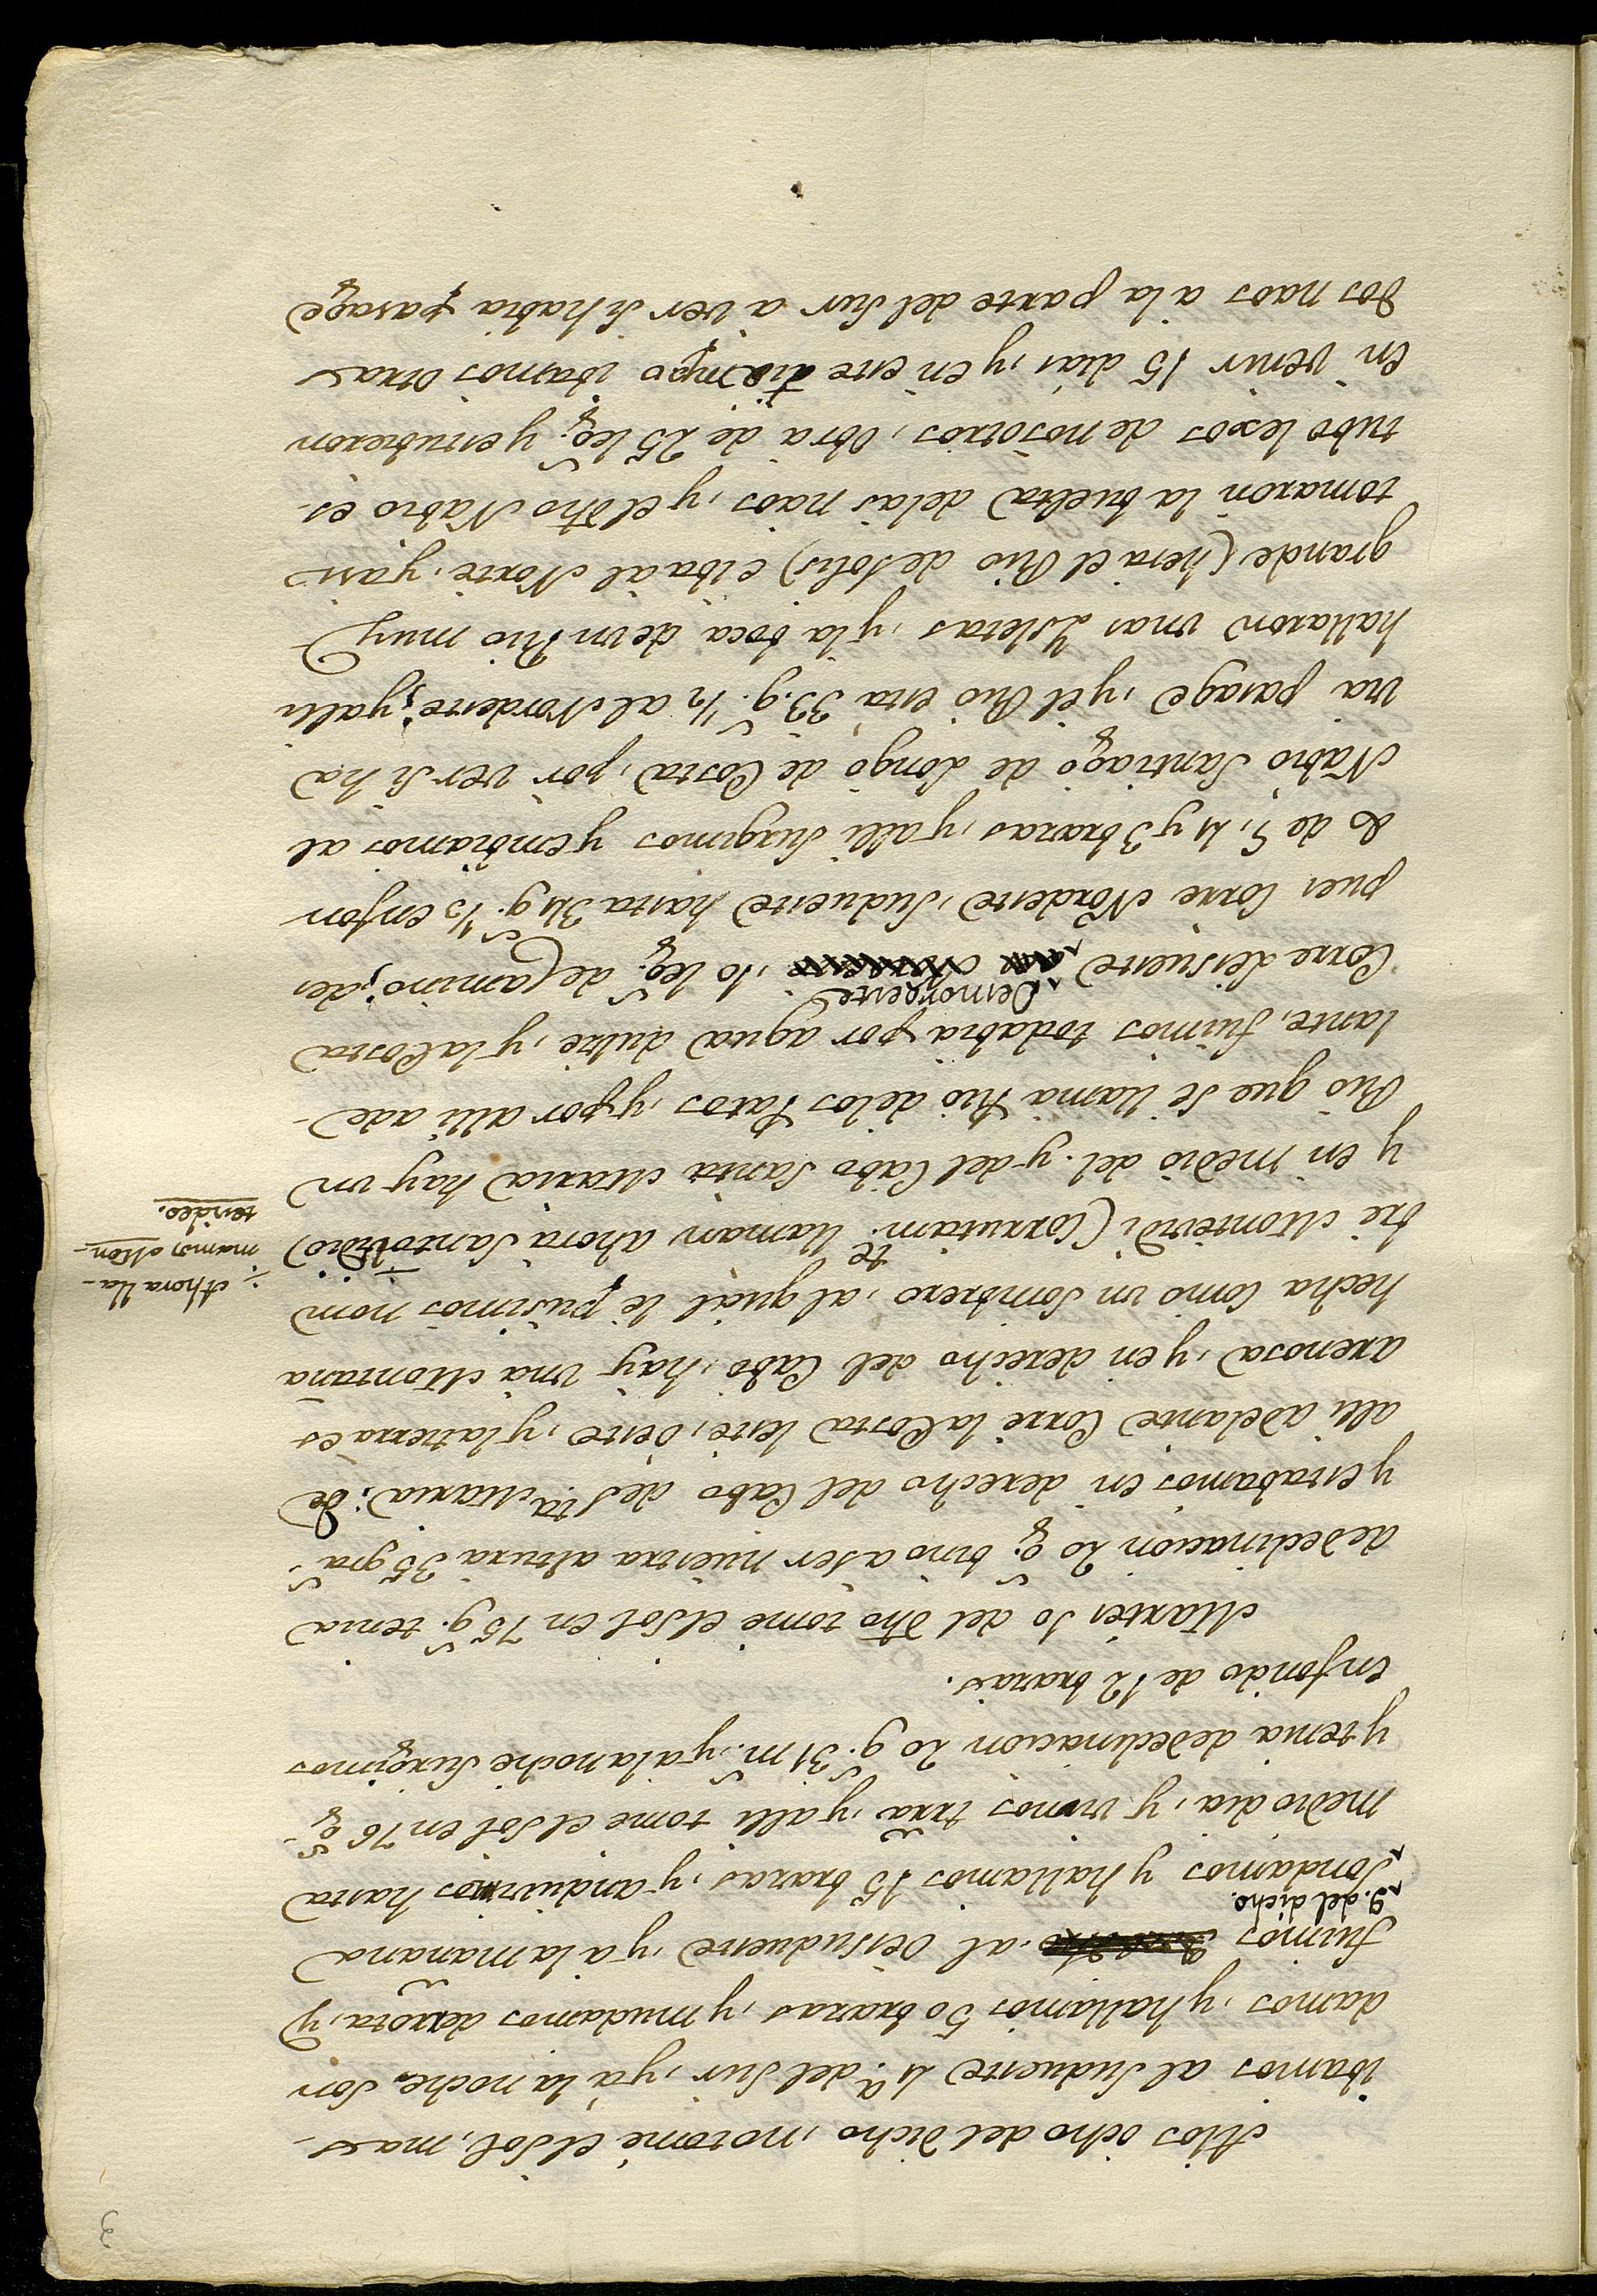 3
Alos ocho del dicho, no tomé el Sol, mas
ibamos al Sudueste 4.ª del Sur, y á la noche Son
damos, y hallamos 50 brazas, y mudamos derrota, y
fuimos al Oessudueste, y a la mañana
9. del dicho.
Sondamos y hallamos 15 brazas, y anduvimos hasta
medio dia, y vimos trrã, y alli tome el Sol en 76 g.s
y tenia de declinacion 20 g.s 31 m.s y a la noche Surgimos
en fondo de 12 brazas.
Martes 10 del dho tome el Sol en 75 g.s tenia
de declinacion 20 g.s vino a ser nuestra altura 35 gra.s
y estabamos en derecho del Cabo de S.ta Maria; de
alli adelante Corre la Costa leste, oeste, y la tierra es
arenosa, y en derecho del Cabo, hay una Montaña
hecha como un Sombrero, al qual le pusimos nom
bre Montevidi (Corrutam.te llaman ahora Santovidio)
÷ Ahora lla-
mamos Mon-
tevideo.
y en medio del. y del Cabo Santa Maria hay un
Rio que se llama Rio de los Patos, y por alli ade-
lante, fuimos todabia por agua dulce, y la Costa
Corre lessueste
10 leg.s de Camino; des
pues Corre Nordeste, Sudueste hasta 34 g.s 1/3 en fon
do de 5, 4 y 3 brazas, y alli Surgimos y embiamos al
Nabio Santiago de Longo de Costa, por ver Si ha
via pasage, y el Rio està 33 g.s 1/2 al Nordeste; y alli
hallaron unas Isletas, y la boca de un Rio muy
grande (hera el Rio de Solis) e iba al Norte, y asi
tomaron la buelta de las naos, y el dho Nabio es-
tubo lexos de nosotros, obra de 25 leg.s y estubieron
en venir 15 dias, y en este tiempo ibamos otras
dos naos a la parte del Sur a ver Si habia pasage